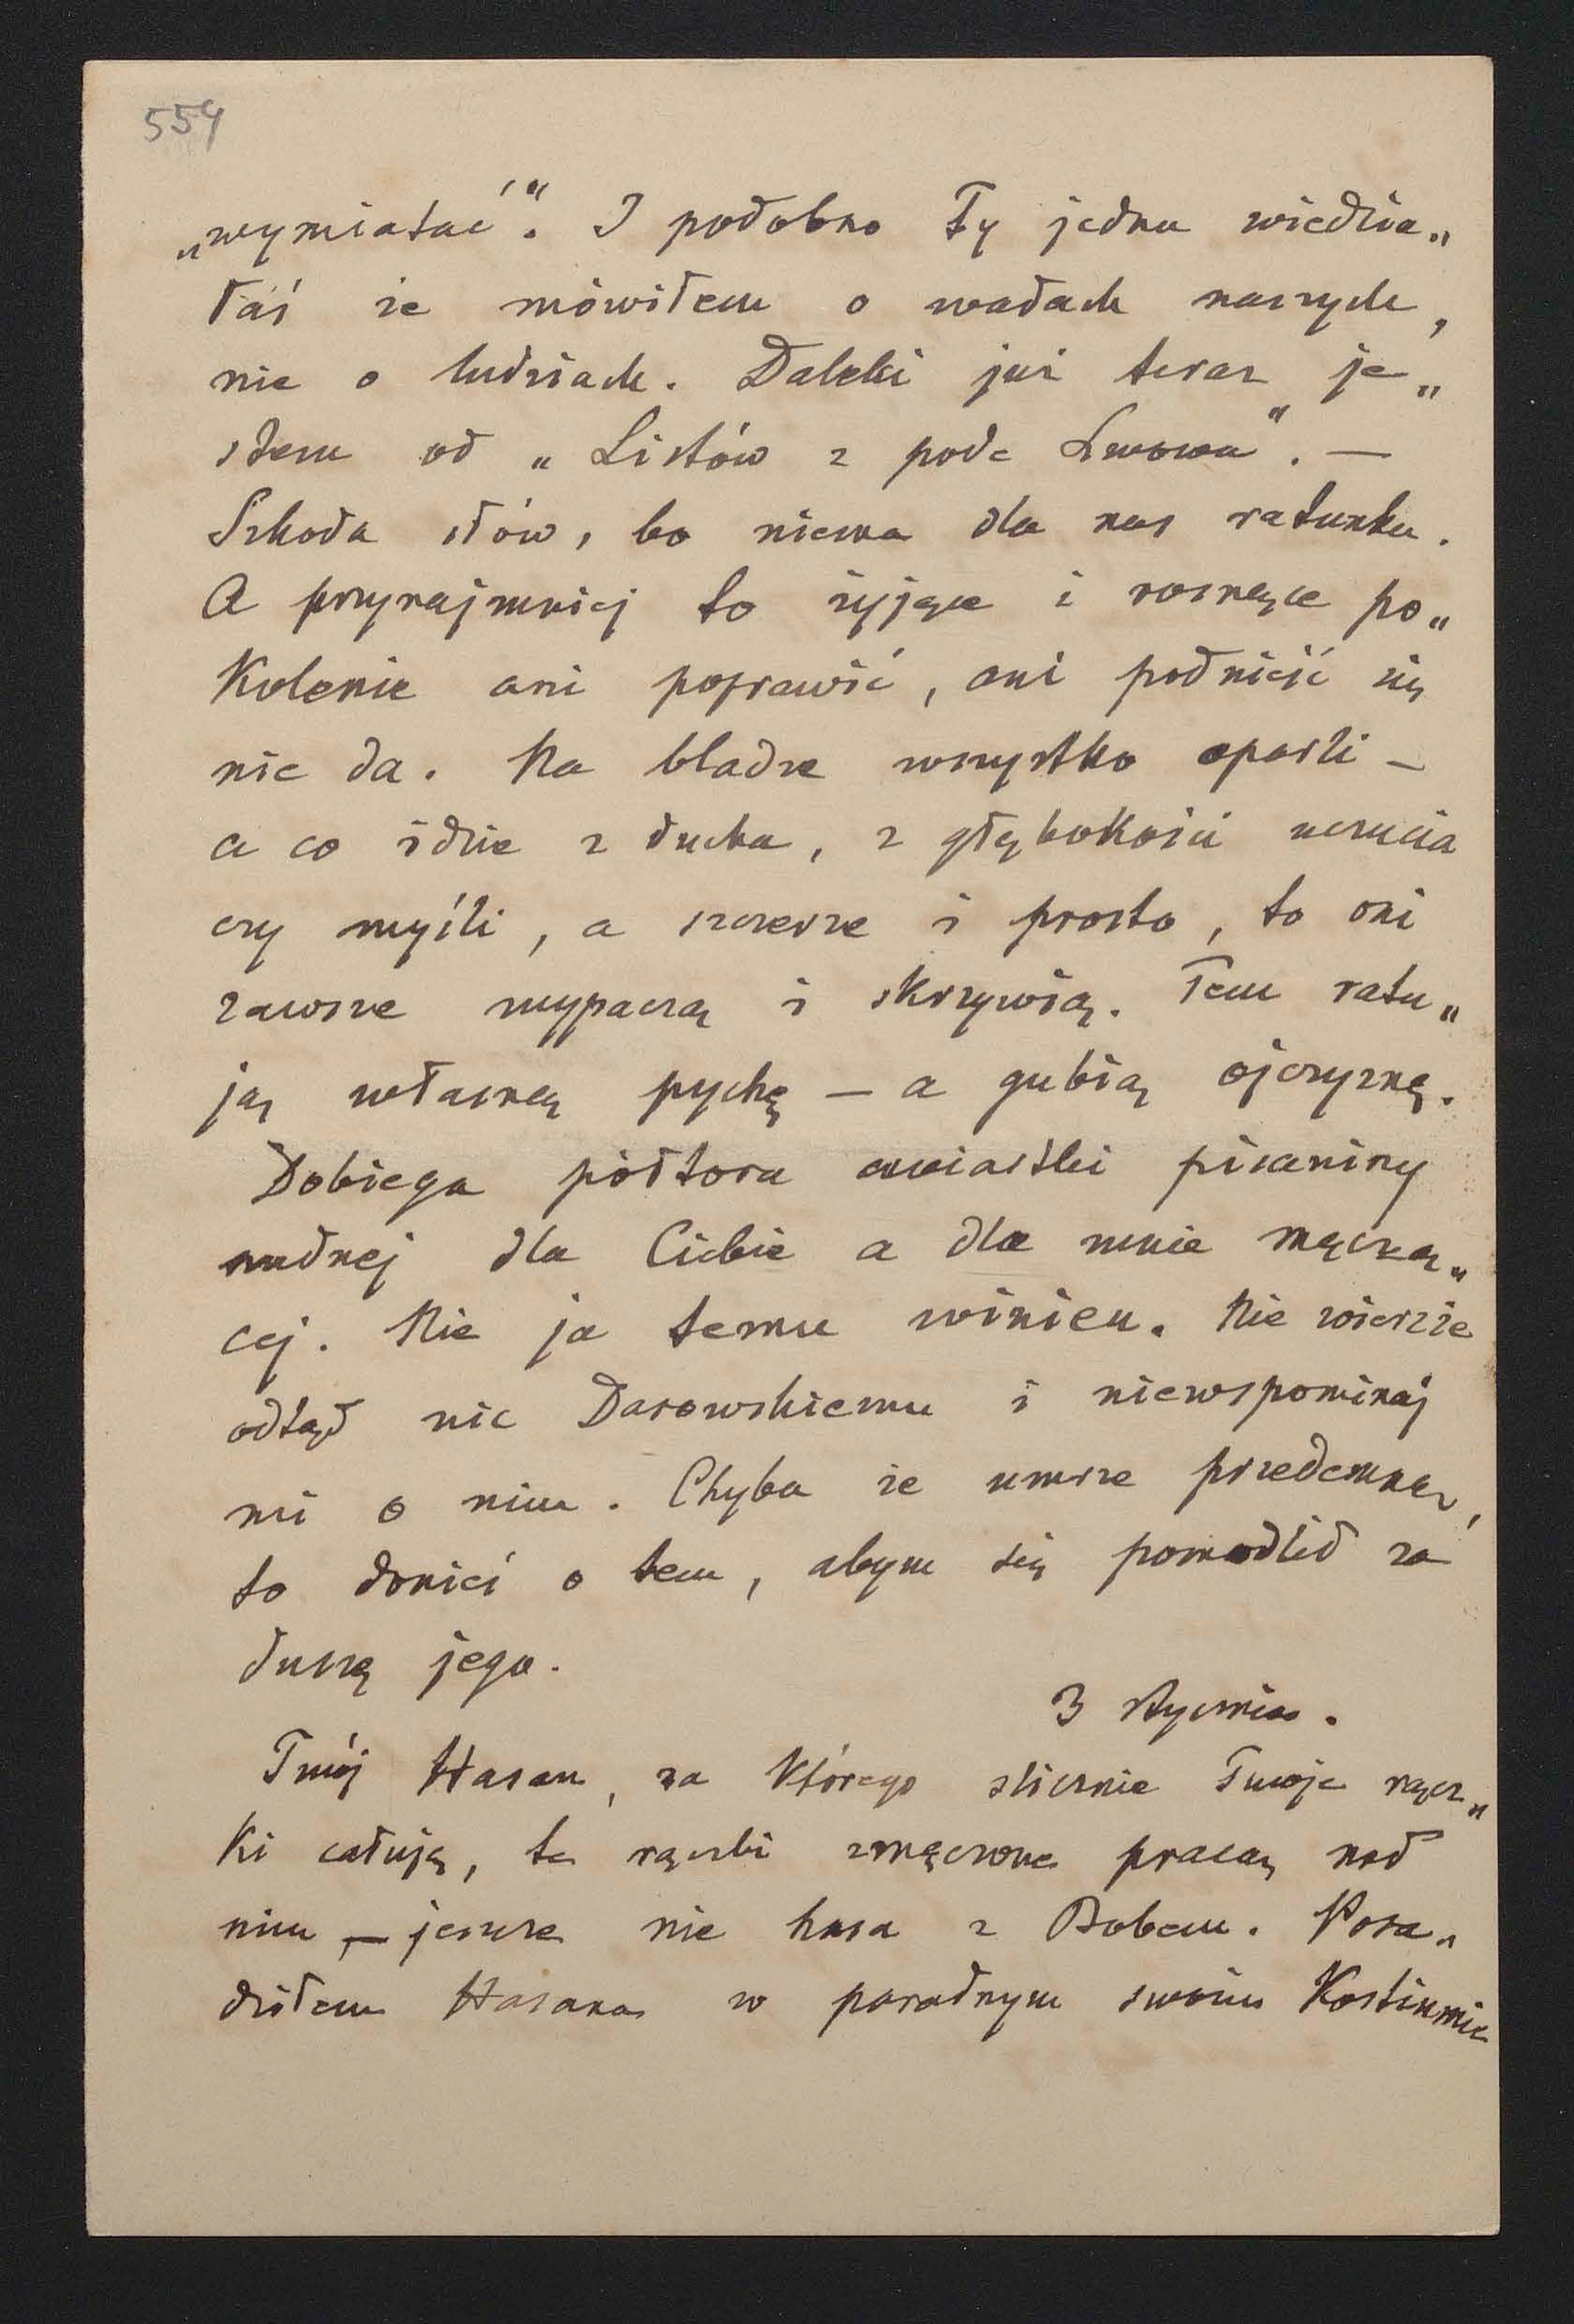 554
„wymiatać". I podobno Ty jedna wiedzia„
łaś że mówiłem o wadach naszych,
nie o ludziach. Daleki już teraz je„
stem od „Listów z pode Lwowa". —
Szkoda słów, bo niema dla nas ratunku.
A przynajmniej to żyjące i rosnące po„
kolenie ani poprawić, ani podnieść się
nie da. Na bladze wszystko oparli —
a co idzie z ducha, z głębokości uczucia
czy myśli, a szczerze i prosto, to oni
zawsze wypaczą i skrzywią. Tem ratu„
ją własną pychę — a gubią ojczyznę.
Dobiega półtora ćwiartki pisaniny
nudnej dla Ciebie a dla mnie męczą„
cej. Nie ja temu winien. Nie wierzże
odtąd nic Darowskiemu i niewspominaj
mi o nim. Chyba że umrze przedemną,
to donieś o tem, abym się pomodlił za
duszę jego.
3 stycznia.
Twój Hasan, za którego ślicznie Twoje rącz„
ki całuję, te rączki zmęczone pracą nad
nim — jeszcze nie hasa z Bobem. Posa„
dziłem Hasana w paradnym swoim Kostiumie